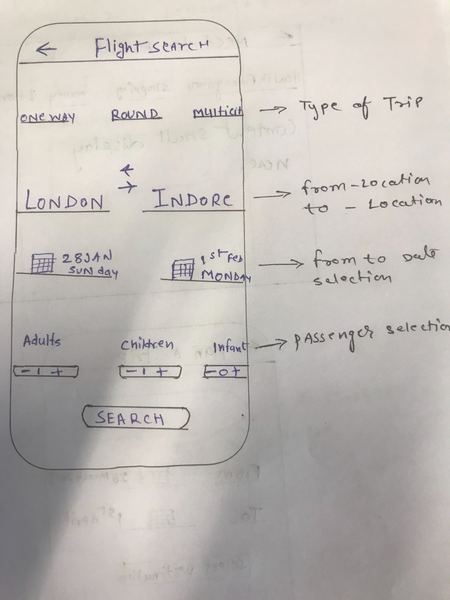 ← Flight SEARCH
ONE WAY ROUND MULTICIT → Type of Trip
LONDON ⇄ INDORE → from-Location
to - Location
28 JAN 1st Feb → from to Date
SUNday MONDAY selection
Adults Children Infant → PASSENGER selection
- 1 + - 1 + - 0 +
SEARCH